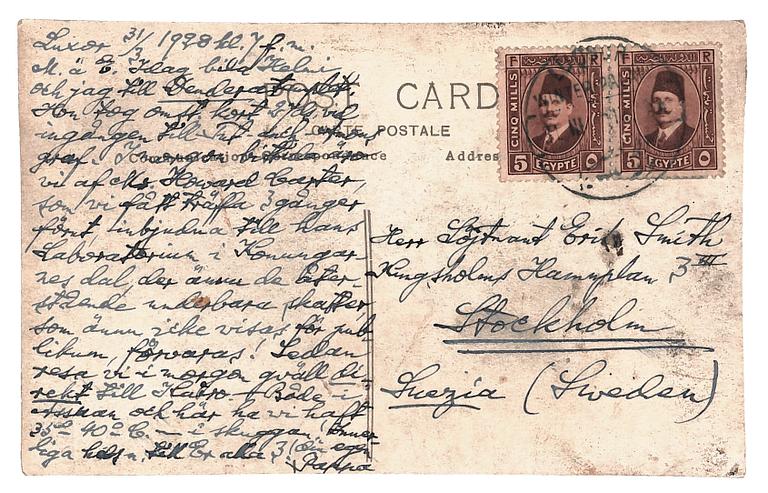 Luxor 31/3 1928 kl. 7 f. m.
M. ä E. Idag bila Helmi
och jag till Dendera templet.
Hon tog om st kort vid
ingången till Tut anch amons
graf. I morgon bitti äro
vi af Mr. Howard Carter,
som vi fått träffa 3 gånger
förut, inbjudna till hans
Laboratorium i Konungar-
nes dal, der ännu de åter-
stående underbara skatter
som ännu icke visas för pub-
likum, förvaras! Sedan
resa vi i morgon qväll di-
rekt till Kairo. Både i
Assuan och här ha vi haft
35 à 40° C. — i skuggan! Inner-
liga hels n. till Er alla 3! din egen
Pappa
POST CARD
CARTE POSTALE
Correspondence
Address
F R
CINQ MILLS
5 EGYPTE ٥
F R
CINQ MILLS
5 EGYPTE ٥
Herr Löjtnant Eric Smith
Kungsholms Hamnplan 3 III
Stockholm
Suezia (Sweden)